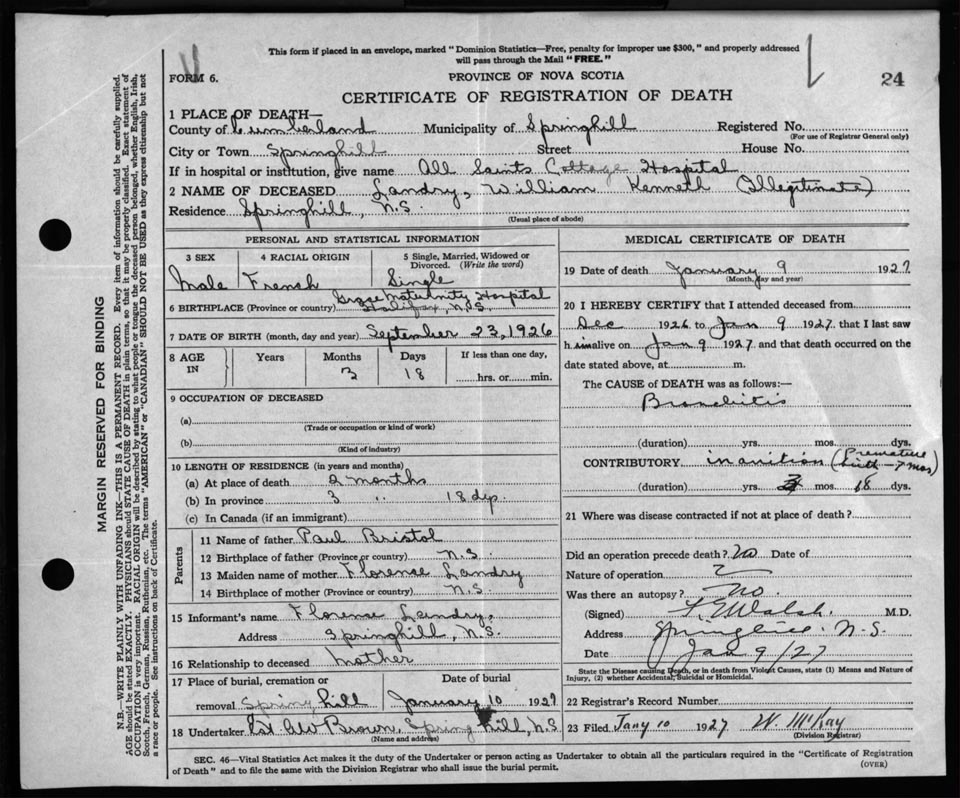 This form if placed in an envelope, marked "Dominion Statistics—Free, penalty for improper use $300," and properly addressed
will pass through the Mail "FREE."
FORM 6.
PROVINCE OF NOVA SCOTIA
24
CERTIFICATE OF REGISTRATION OF DEATH
1 PLACE OF DEATH—
County of Cumberland Municipality of Springhill Registered No.
(For use of Registrar General only)
City or Town Springhill Street House No.
If in hospital or institution, give name All Saints Cottage Hospital
2 NAME OF DECEASED Landry, William Kenneth (Illegitimate)
Residence Springhill, N.S.
(Usual place of abode)
PERSONAL AND STATISTICAL INFORMATION
3 SEX 4 RACIAL ORIGIN 5 Single, Married, Widowed or Divorced. (Write the word)
Male French Single
6 BIRTHPLACE (Province or country) Grace Maternity Hospital
Halifax, N.S.
7 DATE OF BIRTH (month, day and year) September 23, 1926
8 AGE IN Years Months Days If less than one day,
3 18 hrs. or min.
9 OCCUPATION OF DECEASED
(a)
(Trade or occupation or kind of work)
(b)
(Kind of industry)
10 LENGTH OF RESIDENCE (in years and months)
(a) At place of death 2 months
(b) In province 3 " 18 dys.
(c) In Canada (if an immigrant)
Parents
11 Name of father Paul Bristol
12 Birthplace of father (Province or country) N.S.
13 Maiden name of mother Florence Landry
14 Birthplace of mother (Province or country) N.S.
15 Informant's name Florence Landry,
Address Springhill, N.S.
16 Relationship to deceased Mother
17 Place of burial, cremation or Date of burial
removal Springhill January 10 1927
18 Undertaker A W Brown, Springhill, N.S
(Name and address)
MEDICAL CERTIFICATE OF DEATH
19 Date of death January 9 1927
(Month, day and year)
20 I HEREBY CERTIFY that I attended deceased from
Dec 1926 to Jan 9 1927. that I last saw
h im alive on Jan 9 1927 and that death occurred on the
date stated above, at m.
The CAUSE of DEATH was as follows:—
Bronchitis
(duration) yrs. mos. dys.
CONTRIBUTORY inanition (Premature
birth – 7 mos)
(duration) yrs. 3 mos. 18 dys.
21 Where was disease contracted if not at place of death?
Did an operation precede death? No Date of
Nature of operation
Was there an autopsy? No.
(Signed) Walsh. M.D.
Address Springhill, N.S.
Date Jan 9/27
State the Disease causing Death, or in death from Violent Causes, state (1) Means and Nature of
Injury, (2) whether Accidental, Suicidal or Homicidal.
22 Registrar's Record Number
23 Filed Jany 10 1927 W. McKay
(Division Registrar)
SEC. 46—Vital Statistics Act makes it the duty of the Undertaker or person acting as Undertaker to obtain all the particulars required in the "Certificate of Registration
of Death" and to file the same with the Division Registrar who shall issue the burial permit.
(OVER)
MARGIN RESERVED FOR BINDING
N.B.—WRITE PLAINLY WITH UNFADING INK—THIS IS A PERMANENT RECORD. Every item of information should be carefully supplied.
AGE should be stated EXACTLY. PHYSICIANS should STATE CAUSE OF DEATH in plain terms, so that it may be properly classified. Exact statement of
OCCUPATION is very important. RACIAL ORIGIN will be described by stating to what people or tongue the deceased person belonged, whether English, Irish,
Scotch, French, German, Russian, Ruthenian, etc. The terms "AMERICAN" or "CANADIAN" SHOULD NOT BE USED as they express citizenship but not
a race or people. See instructions on back of Certificate.